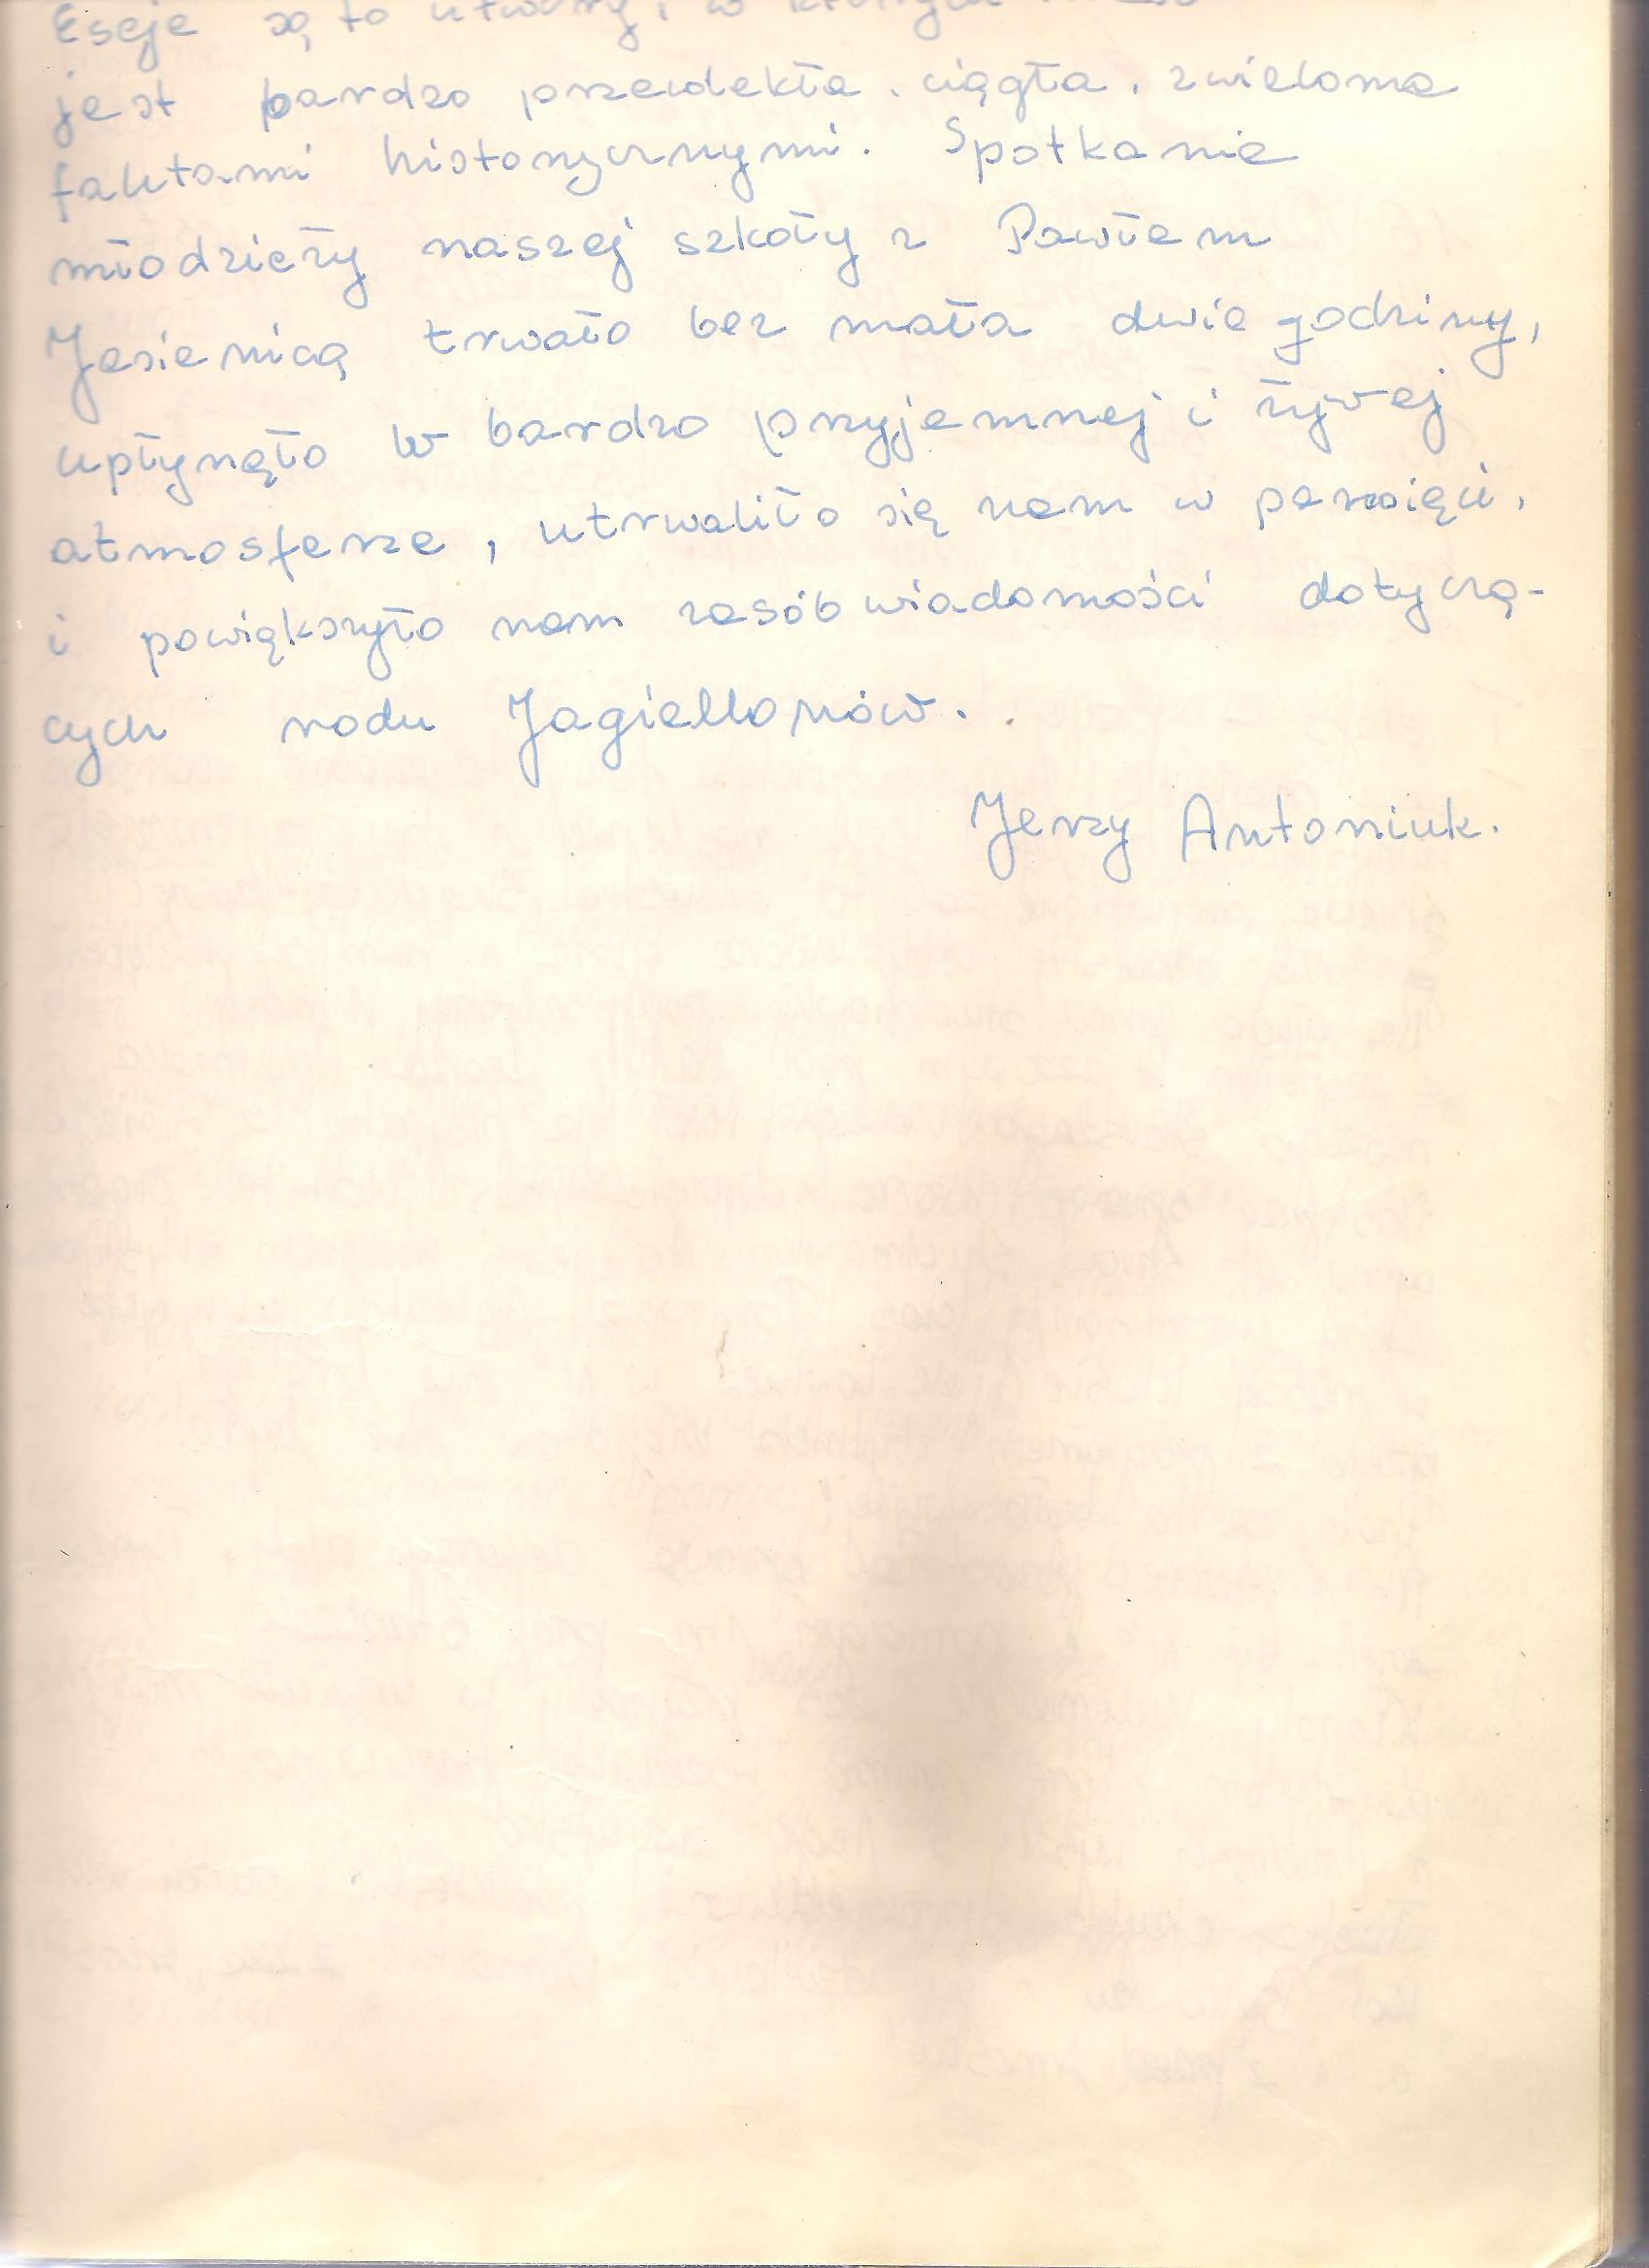 Eseje są to utwory, w których
jest bardzo przewlekła, ciągła, z wieloma
faktami historycznymi. Spotkanie
młodzieży naszej szkoły z Pawłem
Jasienicą trwało bez mała dwie godziny,
upłynęło w bardzo przyjemnej i żywej
atmosferze, utrwaliło się nam w pamięci,
i powiększyło nam zasób wiadomości dotyczą-
cych rodu Jagiellonów.
Jerzy Antoniuk.